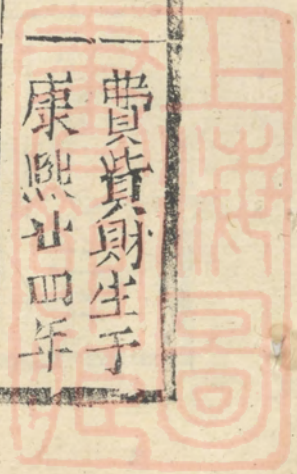 費貲財生于
康熙廿四年
上海圖
書館藏